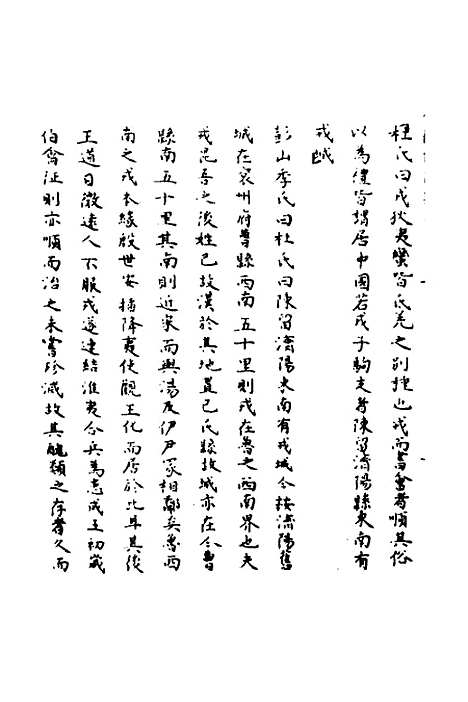 杜氏曰戎狄夷蠻皆氏羌之別種也戎而書會者順其俗
以為禮皆謂居中國若戎子駒支者陳留濟陽縣東南有
戎城
彭山季氏曰杜氏曰陳留濟陽東南有戎城今按濟陽舊
城在兗州府曹縣西南五十里則戎在魯之西南界也夫
戎昆吾之後姓己故漢於其地置己氏縣故城亦在今曹
縣南五十里其南則近宋而與湯及伊尹冡相鄰矣魯西
南之戎本緣殷世安插降夷使觀王化而居於此耳其後
王道日微遠人不服戎遂連結淮夷合兵為患成王初歲
伯禽征則亦順而治之未嘗殄滅故其醜類之存者久而